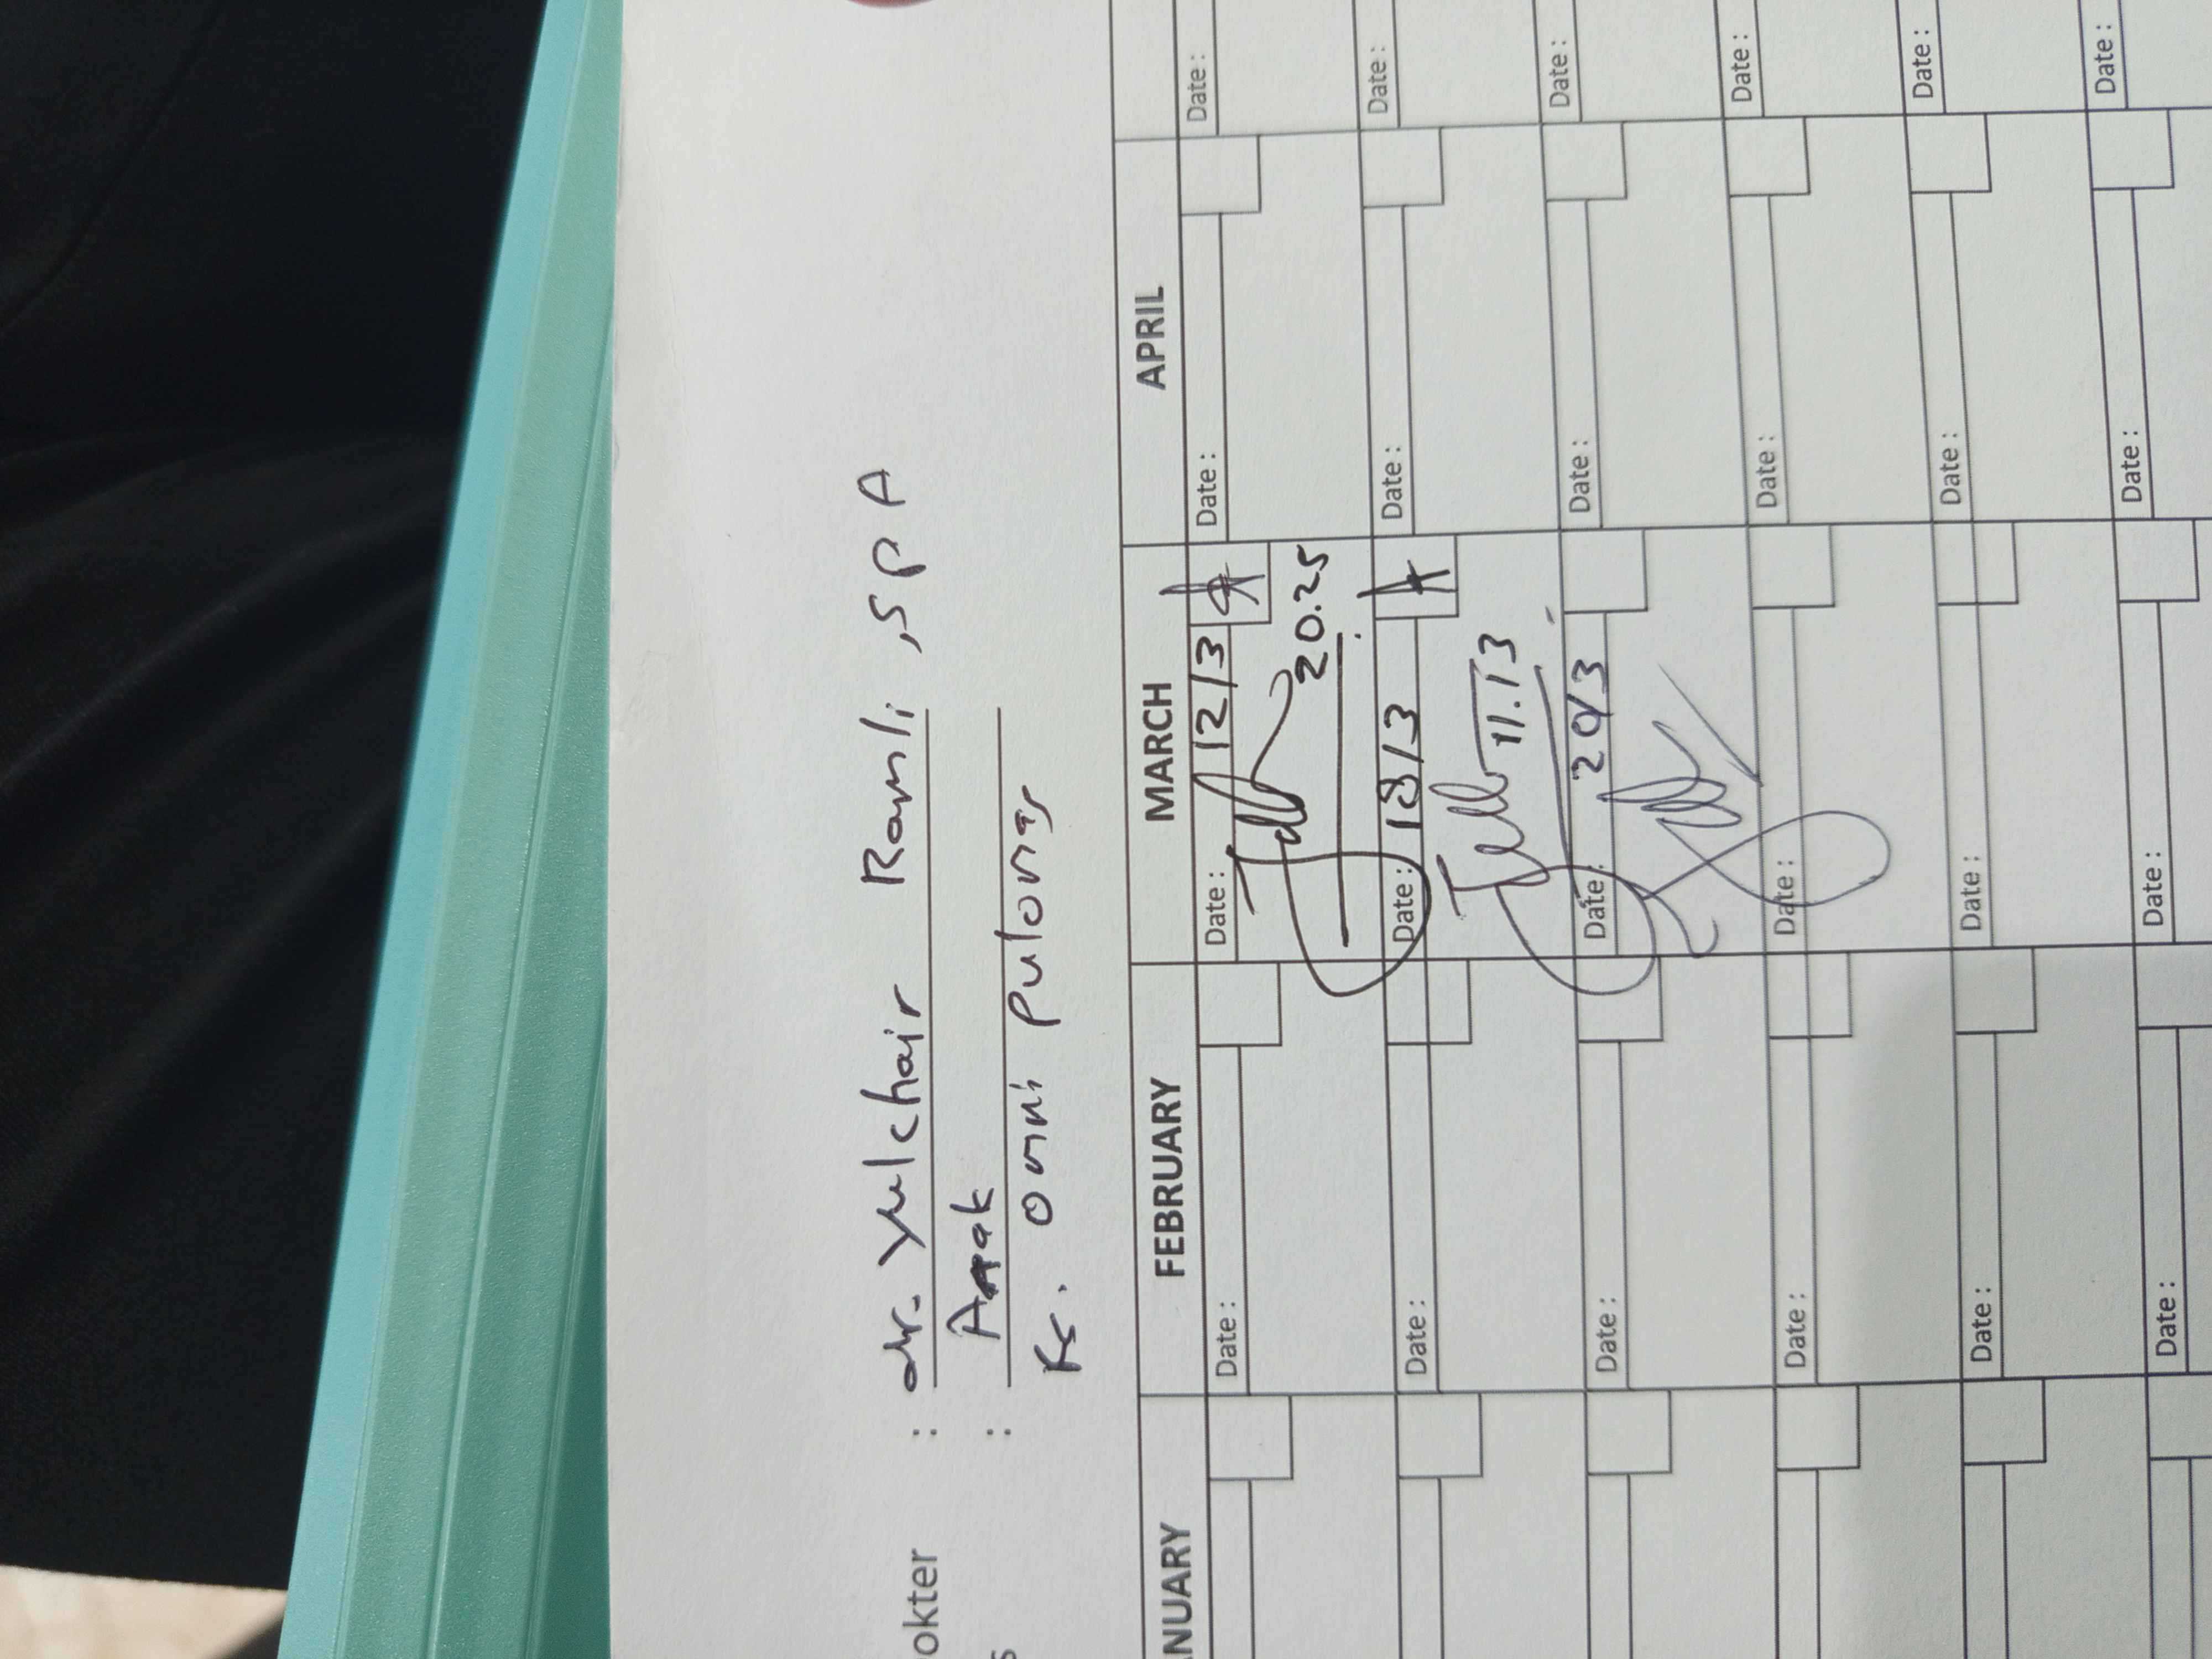 okter : dr. Yulchair Ramli, SpA
s : Anak
Rs. Omni Pulomas
NUARY FEBRUARY MARCH APRIL
Date : Date : 12/3 Date : Date :
20.25
Date : Date : 18/3 Date : Date :
11.13
Date : Date : 20/3 Date : Date :
Date : Date : Date : Date :
Date : Date : Date : Date :
Date : Date : Date : Date :